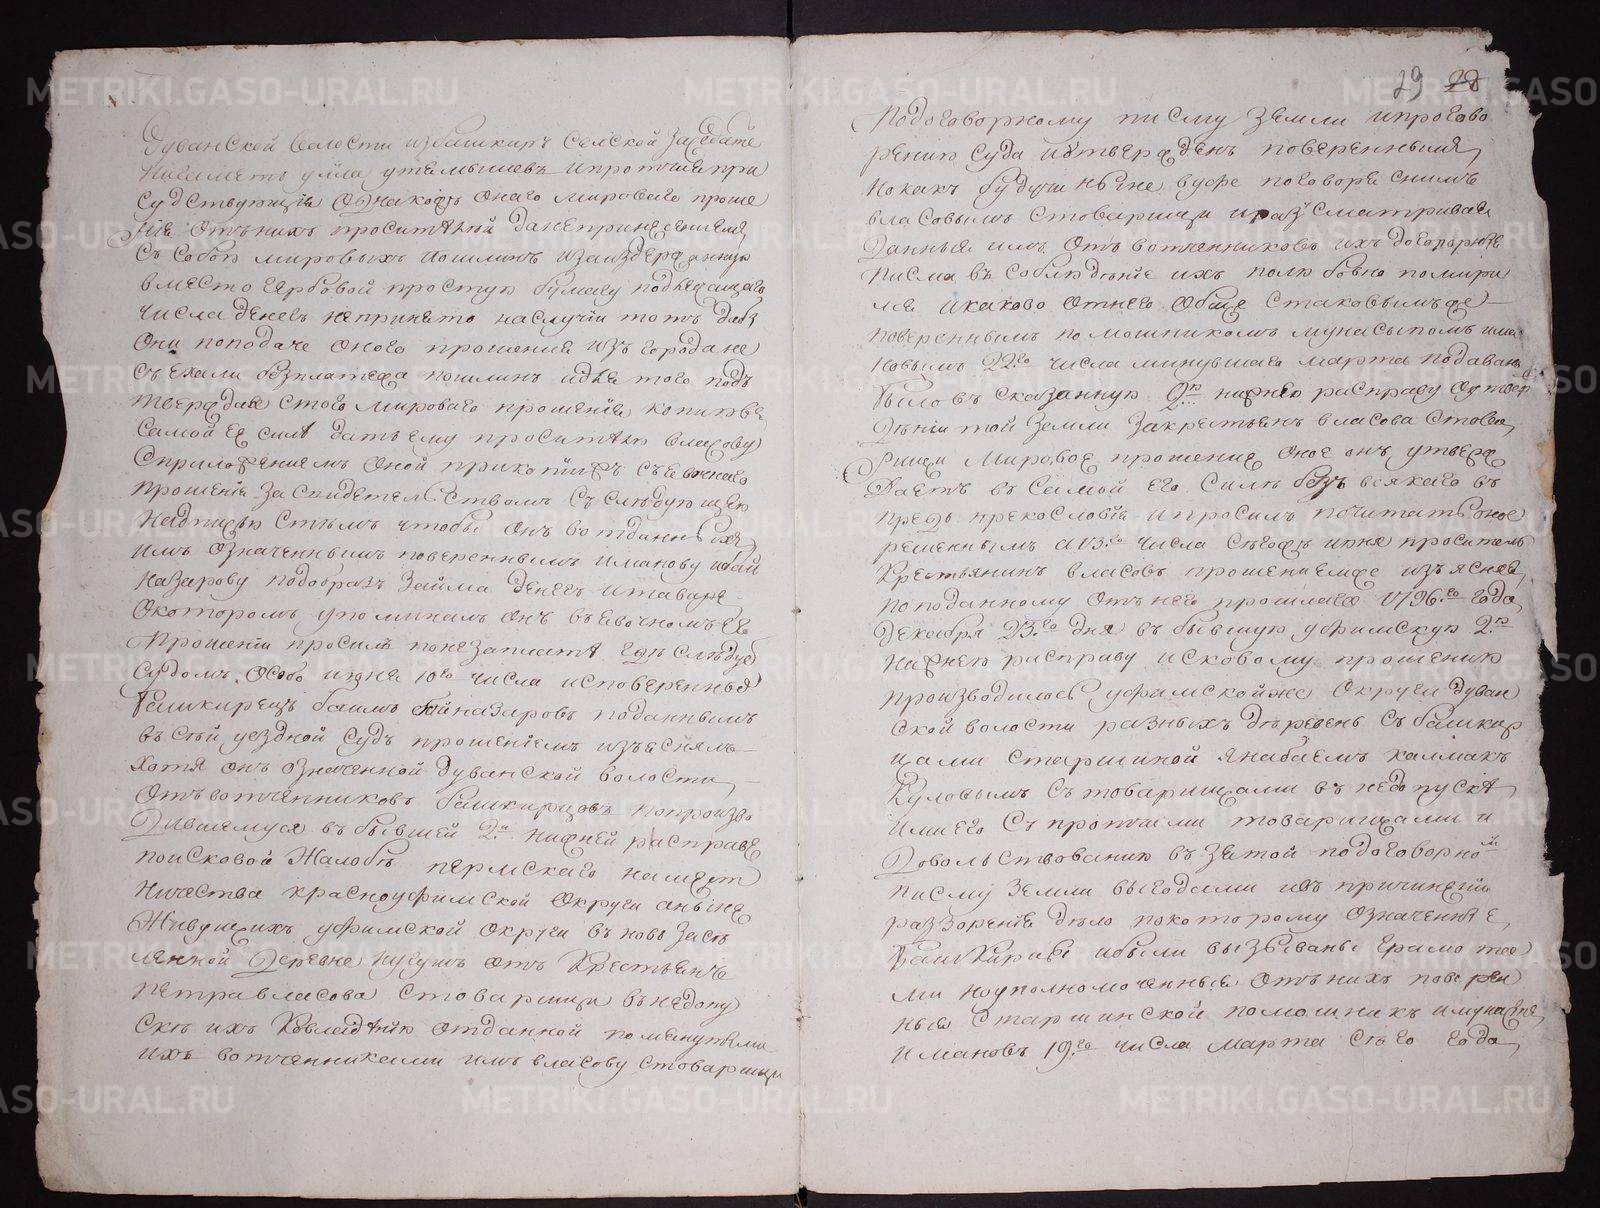 29 28
Дуванской волости избашкиръ Селской Заседате
утемышевъ ипротчие при
судствующие Однакожъ Онаго мироваго проше
ние Отънихъ данепринесениемъ
съ собою мировыхъ пошлинъ изаиздержанную
вместо гербовой простую бумагу подлежащаго
числа денегъ непринято наслучай тотъ дабы
Они поподаче оного прошения изъ городане
съехали безплатежа пошлинъ идля того подъ
тверждая стого мироваго прошение копию въ
самой ее силе дать ему просителю власову
Сприложениемъ Оной прикопии съ явочнаго
прошения Засвидетельствомъ Съследующею
надписью Стемъ чтобы Онъ вотданныхъ
имъ Означеннымъ повереннымъ иманову ибай
назарову подобразъ Займа Денегъ итавара
Окоторомъ упоминалъ Онъ въявочномъ ее
прошении просилъ понезаплате где следуетъ
Судомъ Особо июня 10го числа исповеренныхъ
башкирецъ баимъ байназаровъ поданнымъ
въ сей уездной Судъ прошениемъ изъяснялъ
хотя онъ означенной дуванской волости
Отъвотченниковъ башкирцовъ попроизво
дившемуся въ бывшей 2й нижней расправе
поисковой жалобе пермскаго намест
ничества красноуфимской Округи аныне
Живущихъ уфимской Округи въ новь засе
ленной Деревне отъ Крестьянъ
Петравласова стоварищи въ недопу
ске ихъ Квладению отданной помянутыми
ихъ вотченниками имъ власову стоварищи
Подоговорному писму Земли ипроизво
рению Суда иутвержденъ повереннымъ
Нокакъ будучи ныне вуфе поговоря снимъ
власовымъ стоварищи иразсматривая
Данныя имъ Отъ вотченниковъ ихъ договорные
писма въ соблюдение ихъ полюбовно помири
лся икаково Отнего Обще стаковымъже
повереннымъ помошникомъ мунасыпомъ има
новымъ 22го числа минувшаго марта подавано
было въ сказанную 2ю нижнюю расправу Оутвер
ждении той Земли Закрестьянъ власова стова
рищи мировое прошение оное онъ утверж
даетъ въ самой его силе безъ всякаго въ
предь прекословия ипросилъ почитать оное
решеннымъ а 13го числа сегожъ июня проситель
Крестьянинъ власовъ прошениемже изъясняя
поподанному отънего прошлаго 1796го года
Декабря 23го дня въ бывшую уфимскую 2ю
нижнею расправу исковому прошению
производилось уфимской же Округи Дуван
ской волости разныхъ деревень съ башкир
цами старшиной Янабаемъ калмакъ
Куловымъ Стоварищами въ недопуске
ими его Спротчими товарищами и
довольствованию въ зятой подоговорномъ
писму Земли выгодами ивъ причинении
разъорение дело покоторому Означенные
Башкирцы ибыли вызываны Грамотою
ми ноуполномоченные Отънихъ поверен
ные старшинской помошникъ имунасыпъ
имановъ 19го числа марта сего года